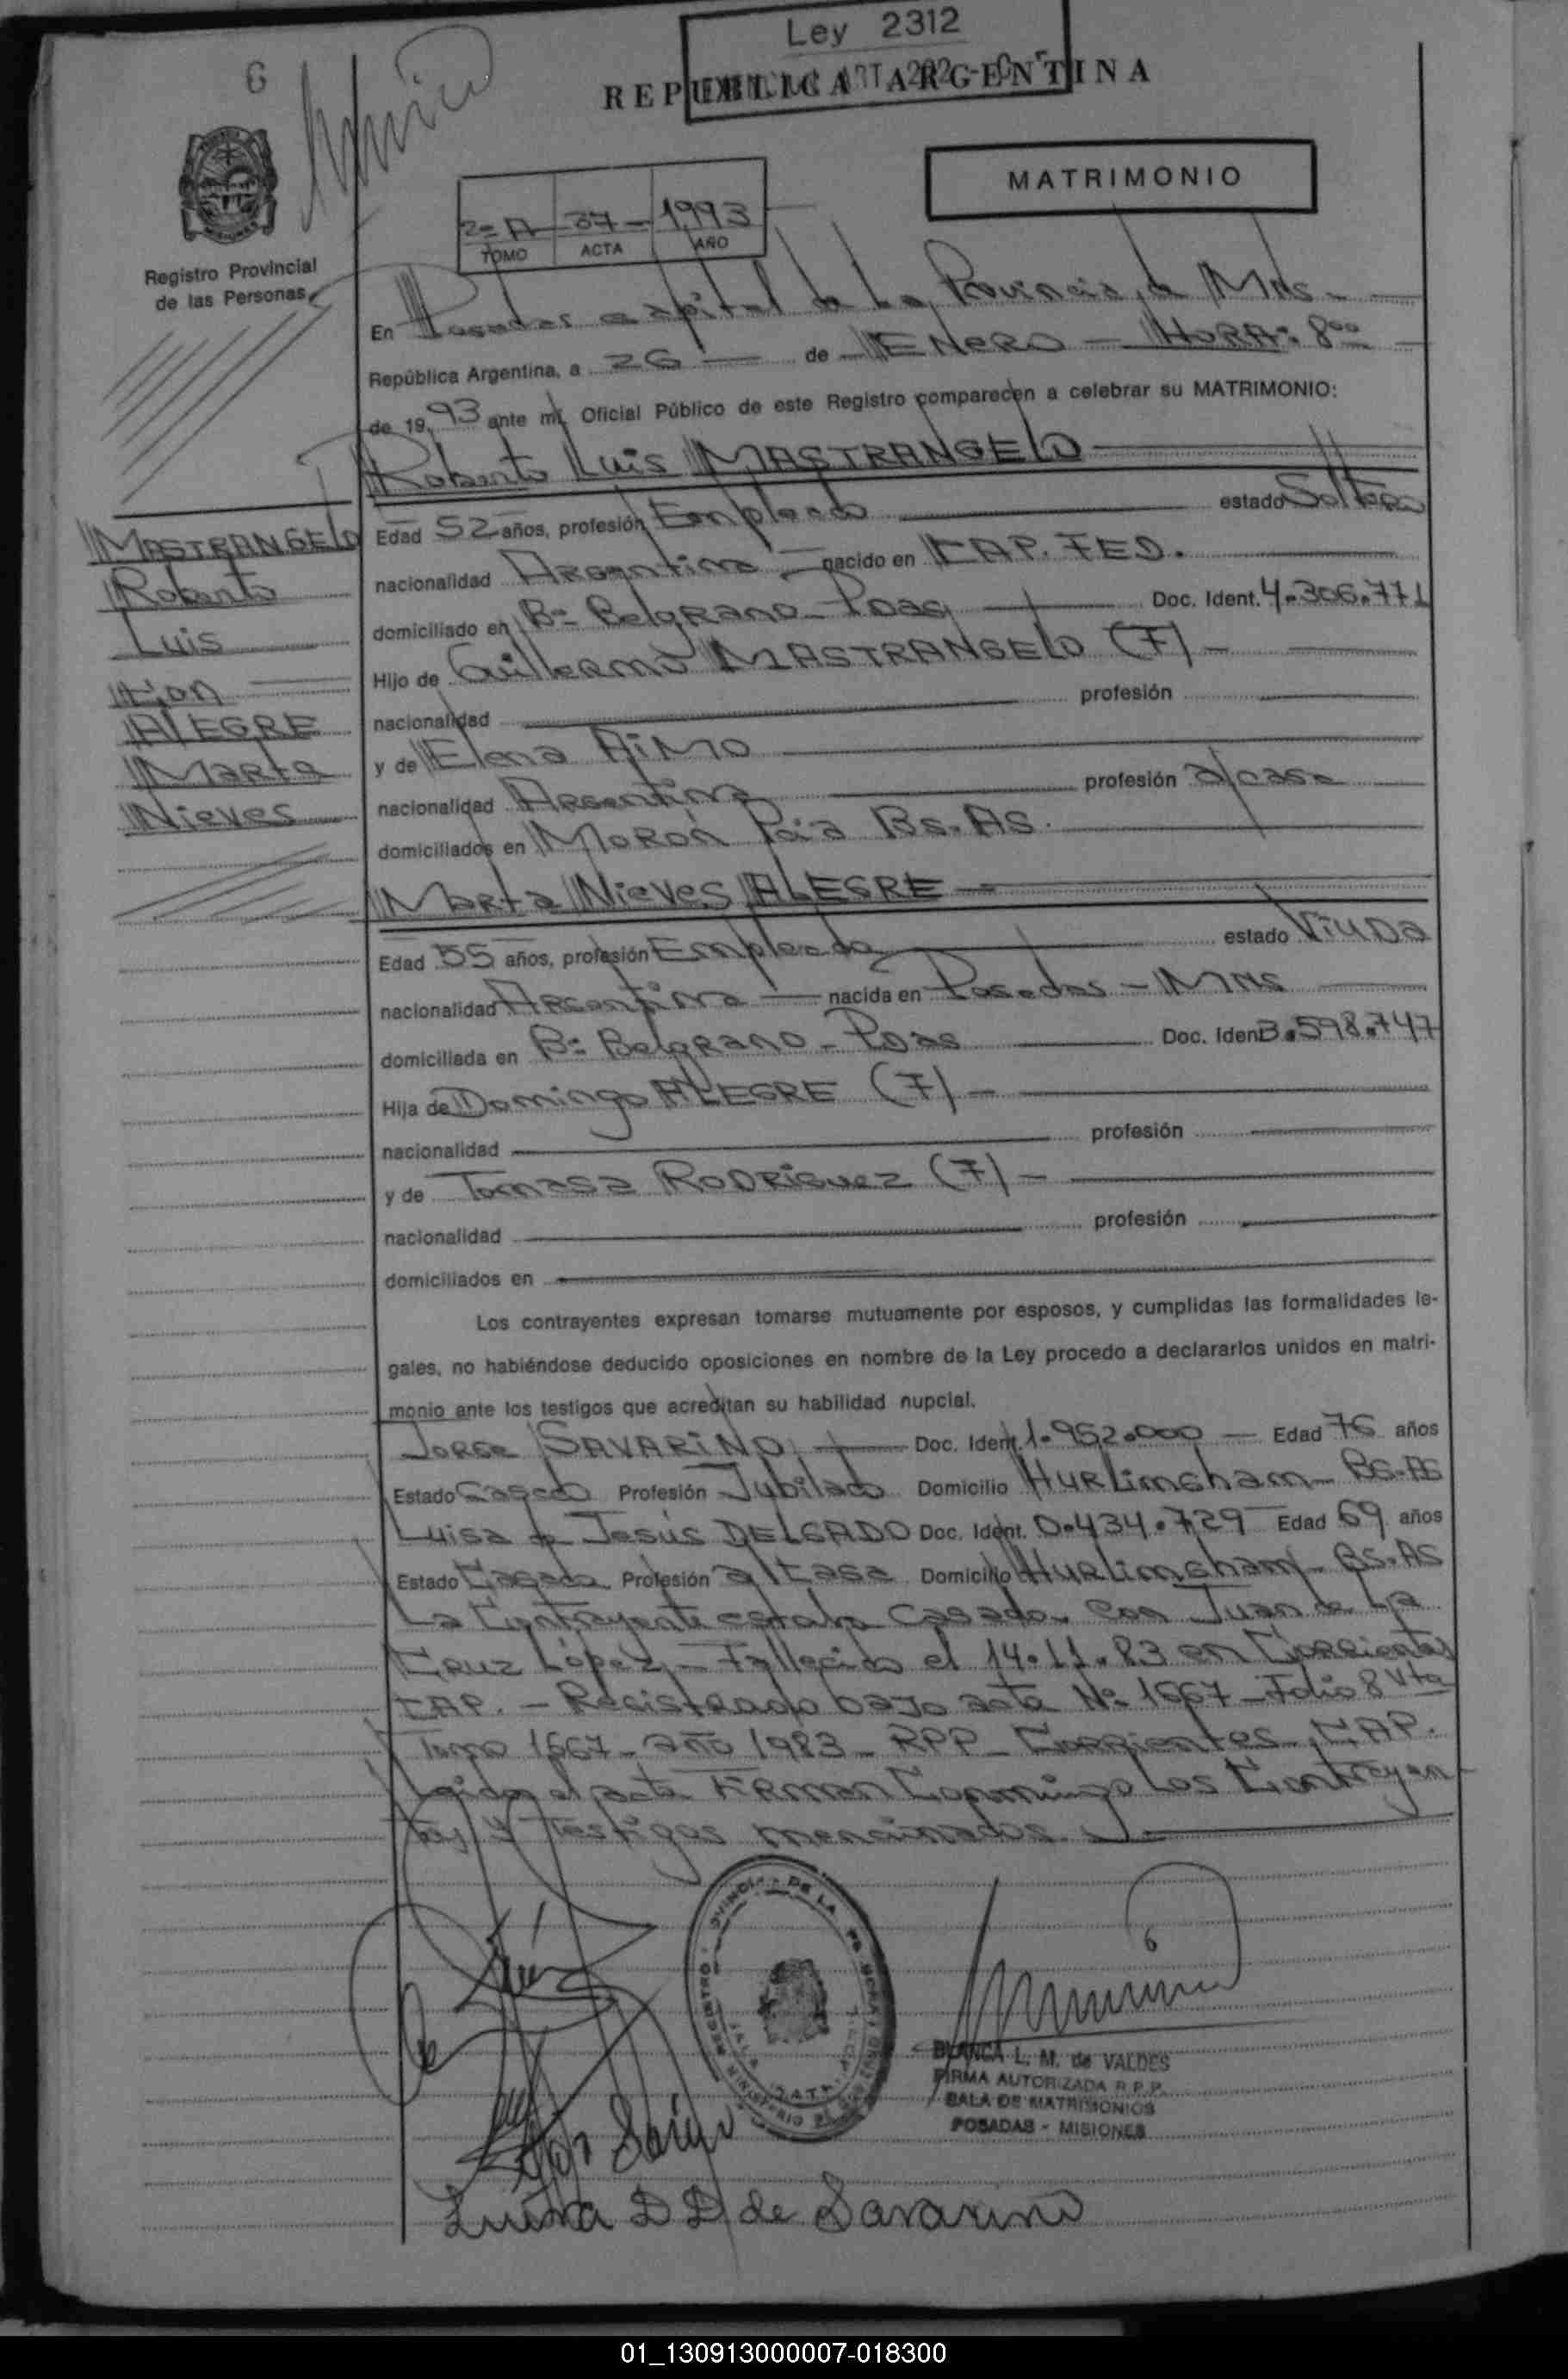 Ley 2312
REPUBLICA ARGENTINA
6
MATRIMONIO
2º A 37 - 1993
TOMO ACTA AÑO
Registro Provincial
de las Personas
En Posadas capital de la Provincia de Mns -
República Argentina, a 26 de ENERO - HORA: 8ºº
de 19 93 ante mí, Oficial Público de este Registro comparecen a celebrar su MATRIMONIO:
Roberto Luis MASTRANGELO
MASTRANGELO
Roberto
Luis
con
ALEGRE
Marta
Nieves
Edad 52 años, profesión Empleado estado Soltero
nacionalidad Argentina nacido en CAP. FED.
domiciliado en Bº Belgrano - Pdas Doc. Ident. 4.306.771
Hijo de Guillermo MASTRANGELO (F) -
nacionalidad profesión
y de Elena AiMO
nacionalidad Argentina profesión a/casa
domiciliados en MORON Pcia Bs. As.
Marta Nieves ALEGRE -
Edad 55 años, profesión Empleada estado Viuda
nacionalidad Argentina nacida en Posadas - Mns
domiciliada en Bº Belgrano - Pdas Doc. Ident 3.598.747
Hija de Domingo ALEGRE (F) -
nacionalidad profesión
y de Tomasa RODRIGUEZ (F) -
nacionalidad profesión
domiciliados en
Los contrayentes expresan tomarse mutuamente por esposos, y cumplidas las formalidades le-
gales, no habiéndose deducido oposiciones en nombre de la Ley procedo a declararlos unidos en matri-
monio ante los testigos que acreditan su habilidad nupcial.
Jorge SAVARINO Doc. Ident. 1.952.000 - Edad 76 años
Estado Casado Profesión Jubilado Domicilio Hurlimgham - BS.AS
Luisa de Jesús DELGADO Doc. Ident. 0.434.729 Edad 69 años
Estado Casada Profesión a/casa Domicilio Hurlimgham - BS.AS
La Contrayente estaba casada con Juan de La
Cruz López - Fallecido el 14.11.83 en Corrientes
CAP. - Registrado bajo acta Nº 1667 - Folio 8 Vta
Tomo 1667 - año 1983 - RPP - Corrientes CAP.
Leida el acta Firman Conmingo los Contrayen
tes y Testigos mencinados.
BLANCA L. M. de VALDES
FIRMA AUTORIZADA R.P.P.
SALA DE MATRIMONIOS
POSADAS - MISIONES
Luisa D D de Savarino
01_130913000007-018300